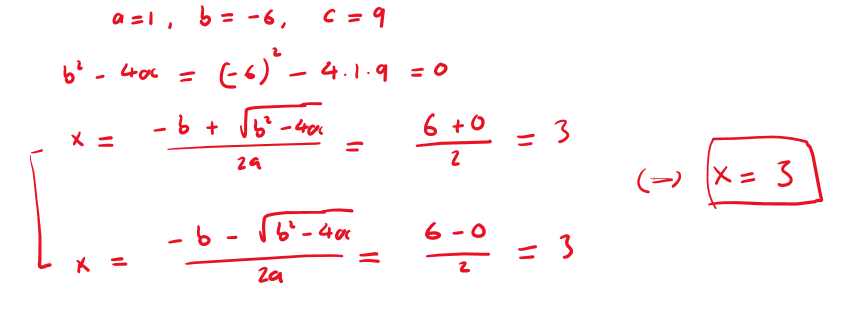 a = 1, b = -6, c = 9
b² - 4ac = (-6)² - 4.1.9 = 0
x = (-b + √(b² - 4ac))/(2a) = (6 + 0)/2 = 3
(=) x = 3
x = (-b - √(b² - 4ac))/(2a) = (6 - 0)/2 = 3